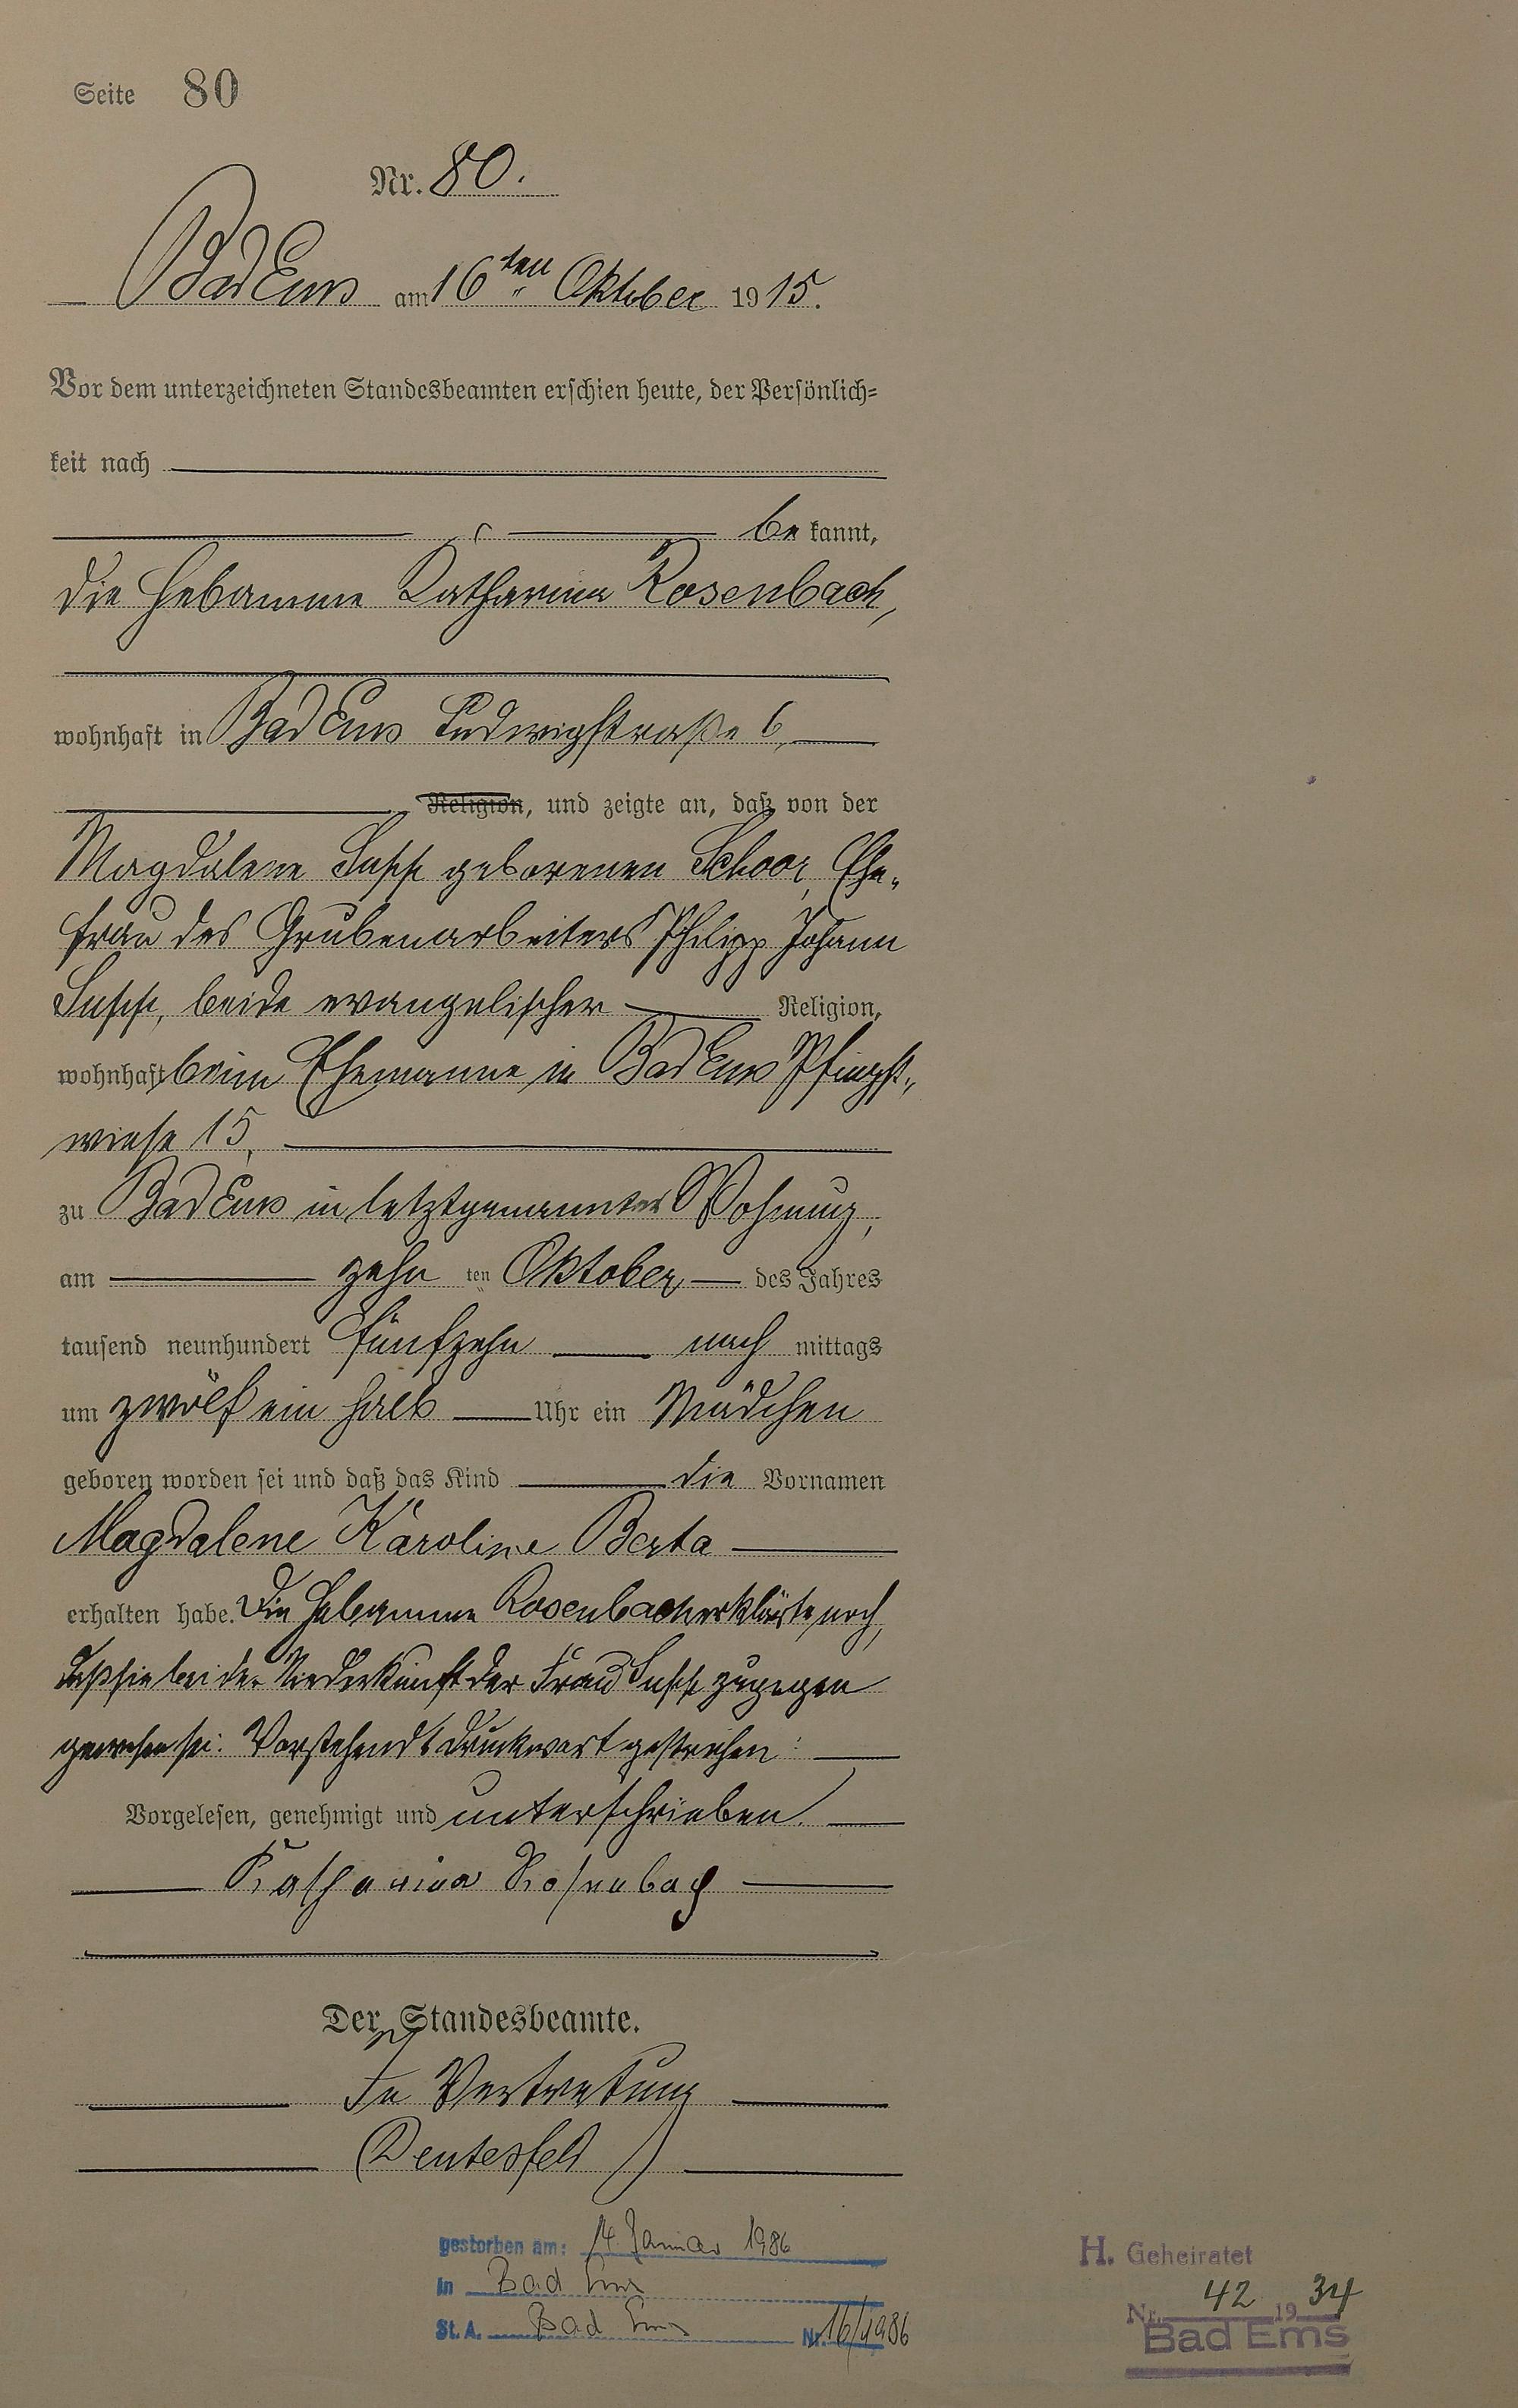 Seite 80
Nr. 80.
Bad Ems am 16ten Oktober 1915.
Vor dem unterzeichneten Standesbeamten erschien heute, der Persönlich-
keit nach
be kannt,
die Hebamme Katharina Rosenbach,
wohnhaft in Bad Ems Ludwigstraße 6,
Religion, und zeigte an, daß von der
Magdalene geborenen Schoor, Ehe-
frau des Grubenarbeiters Philipp Johann
beide evangelischer Religion,
wohnhaft beim Ehemanne in Bad Ems Pfingst-
wiese 15,
zu Bad Ems in letztgenannter Wohnung,
am zehn ten Oktober des Jahres
tausend neunhundert fünfzehn nach mittags
um zwölf ein halb Uhr ein Mädchen
geboren worden sei und daß das Kind die Vornamen
Magdalene Karoline Berta
erhalten habe. Die Hebamme Rosenbach erklärte noch,
daß sie bei der Niederkunft der Frau zugegen
gewesen sei. Vorstehend 1 Druckwort gestrichen.
Vorgelesen, genehmigt und unterschrieben.
Katharina Rosenbach
Der Standesbeamte.
In Vertretung
gestorben am: 14. Januar 1986
in Bad Ems
St. A. Bad Ems Nr. 16/1986
H. Geheiratet
Nr. 42 19 34
Bad Ems